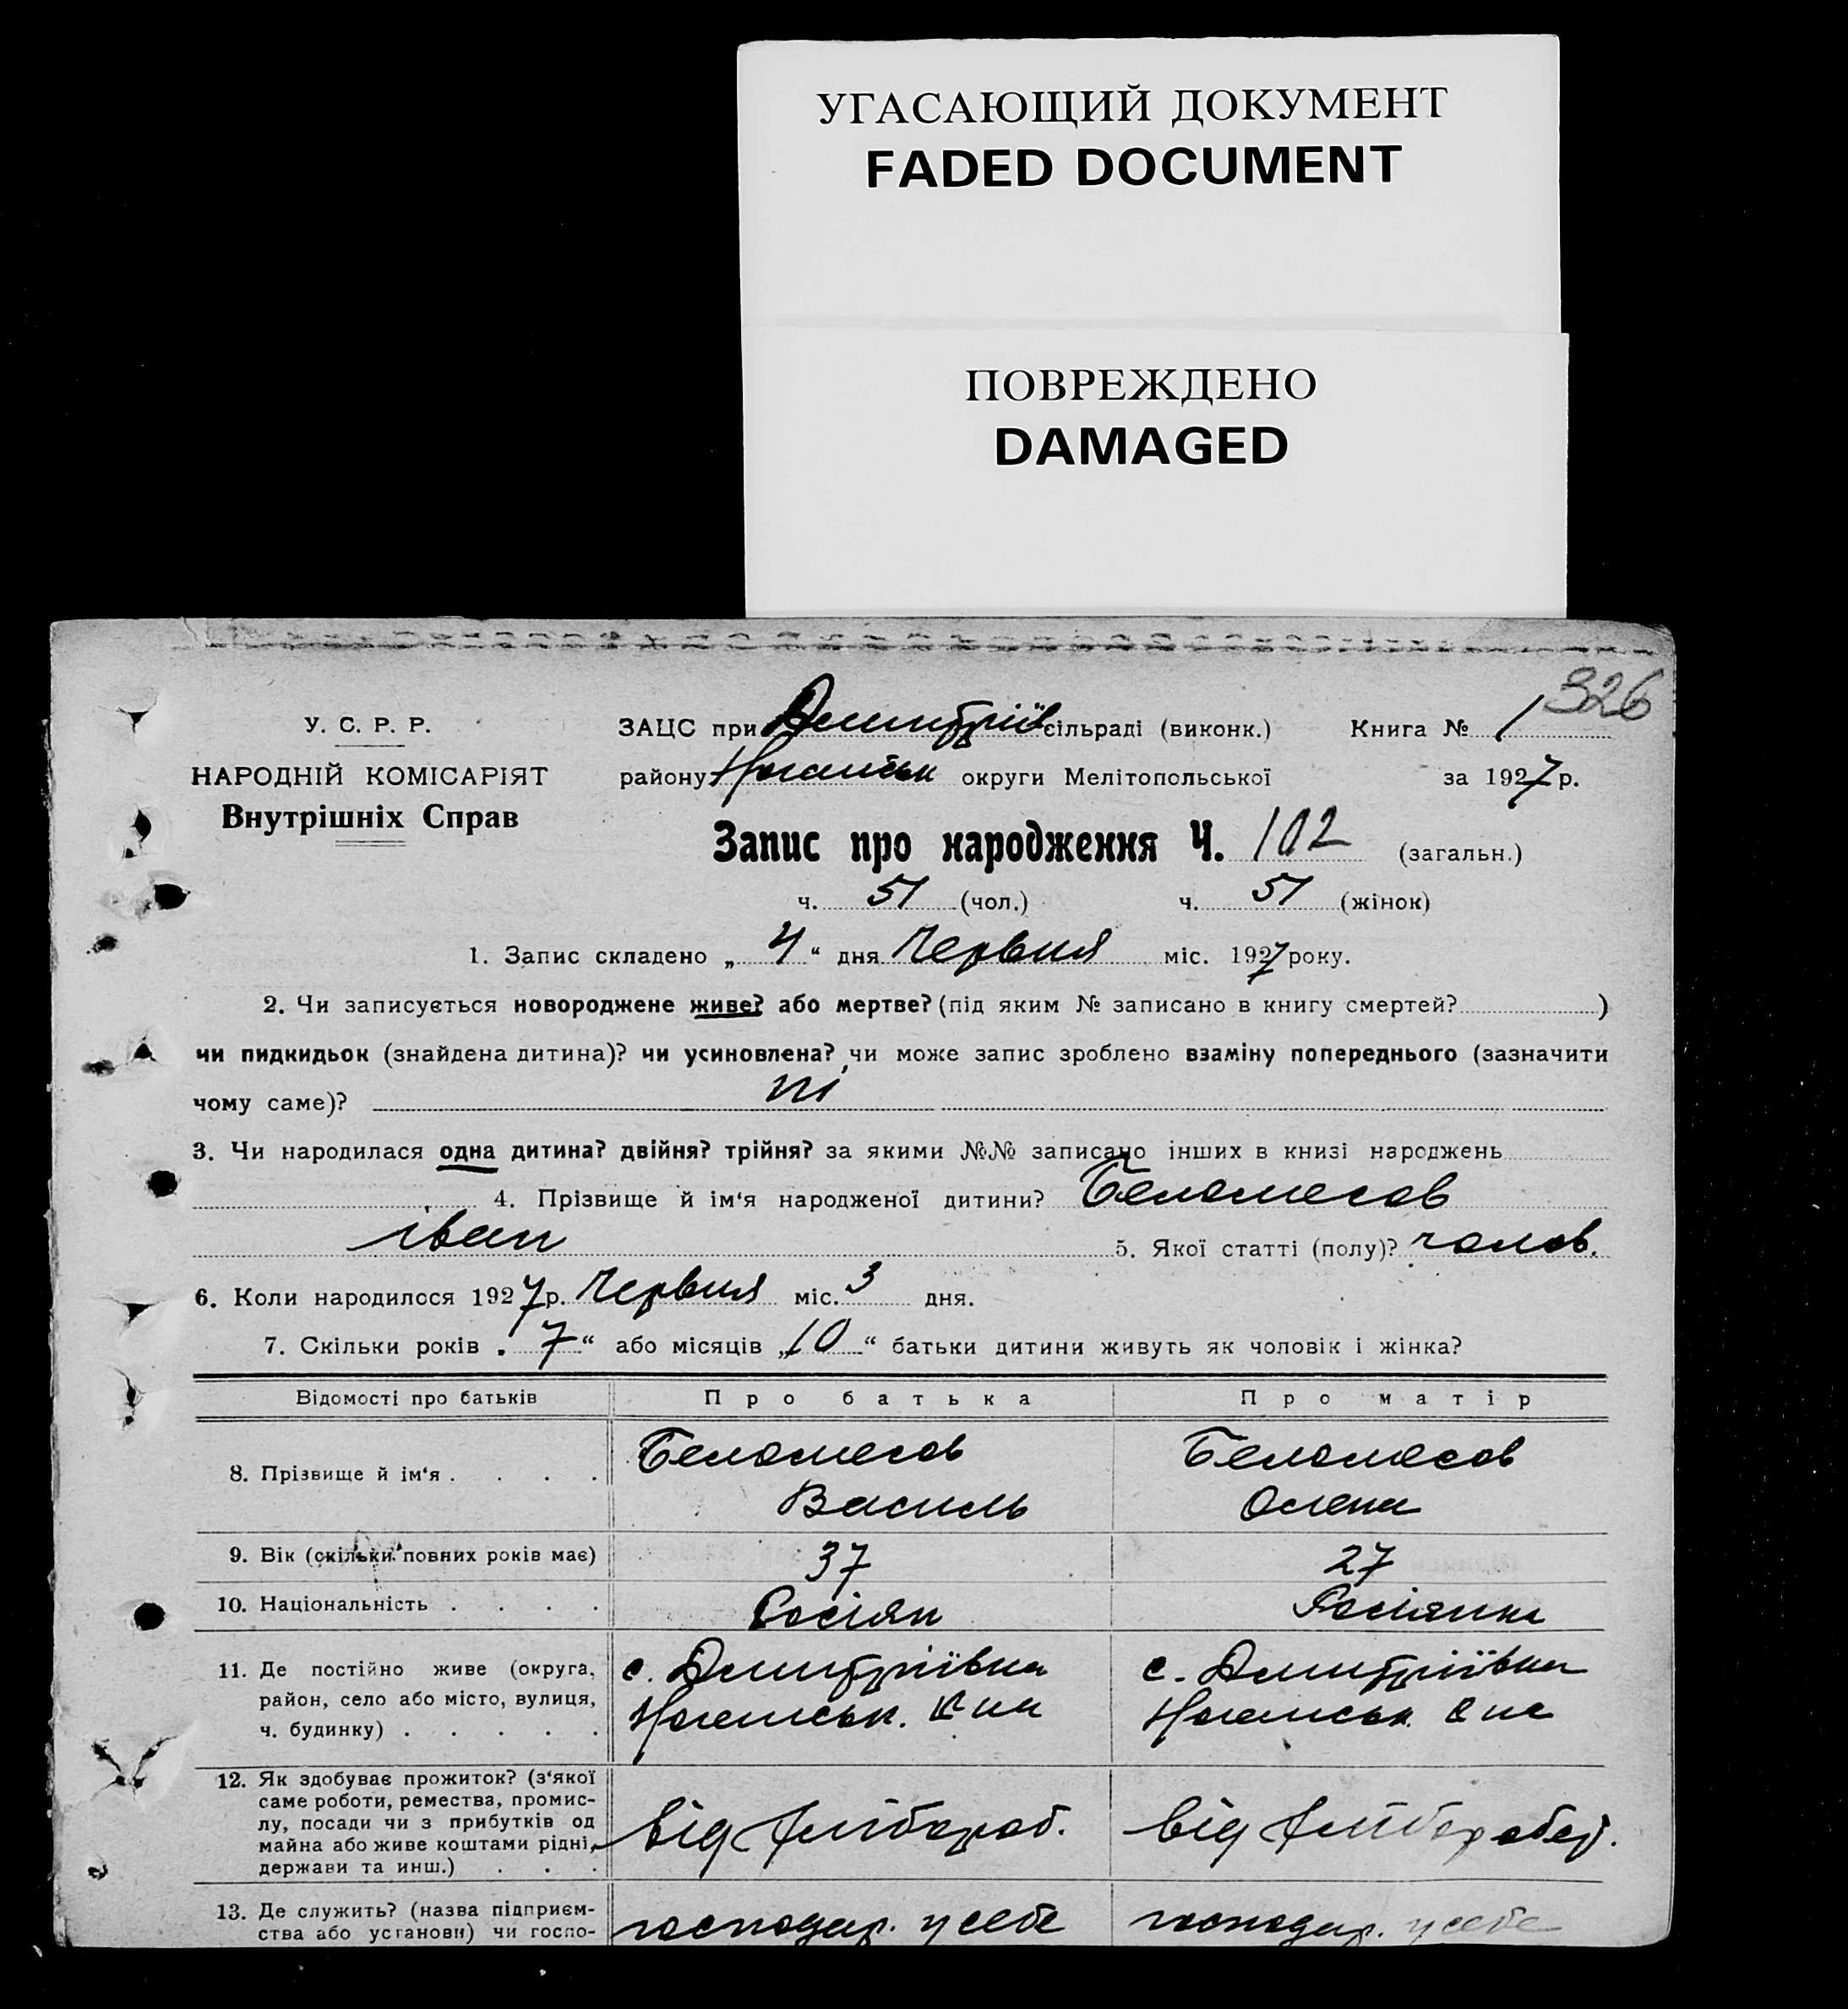 УГАСАЮЩИЙ ДОКУМЕНТ
FADED DOCUMENT
ПОВРЕЖДЕНО
DAMAGED
326
У. С. Р. Р.
НАРОДНІЙ КОМІСАРІЯТ
Внутрішніх Справ
ЗАЦС при Дмитріїв сільраді (виконк.) Книга № 1
району Ногайськ округи Мелітопольської за 1927 р.
Запис про народження Ч. 102 (загальн.)
ч. 51 (чол.) ч. 51 (жінок)
1. Запис складено „ 4 “ дня Червня міс. 1927 року.
2. Чи записується новороджене живе? або мертве? (під яким № записано в книгу смертей? )
чи пидкидьок (знайдена дитина)? чи усиновлена? чи може запис зроблено взаміну попереднього (зазначити
чому саме)? ні
3. Чи народилася одна дитина? двійня? трійня? за якими №№ записано інших в книзі народжень
4. Прізвище й ім‘я народженої дитини? Беломесов
іван 5. Якої статті (полу)? чолов.
6. Коли народилося 1927 р. Червня міс. 3 дня.
7. Скільки років „ 7 “ або місяців „ 10 “ батьки дитини живуть як чоловік і жінка?
Відомості про батьків Про батька Про матір
8. Прізвище й ім‘я . . . . Беломесов Беломесов
Василь Олена
9. Вік (скільки повних років має) 37 27
10. Національність . . . . Росіян Росіянка
11. Де постійно живе (округа, с. Дмитріївка с. Дмитріївка
район, село або місто, вулиця, Ногайськ. Ногайськ.
ч. будинку) . . . . .
12. Як здобуває прожиток? (з‘якої
саме роботи, ремества, промис-
лу, посади чи з прибутків од від від
майна або живе коштами рідні,
держави та инш.) . . .
13. Де служить? (назва підприєм-
ства або установи) чи госпо- господар. у себе господар. у себе